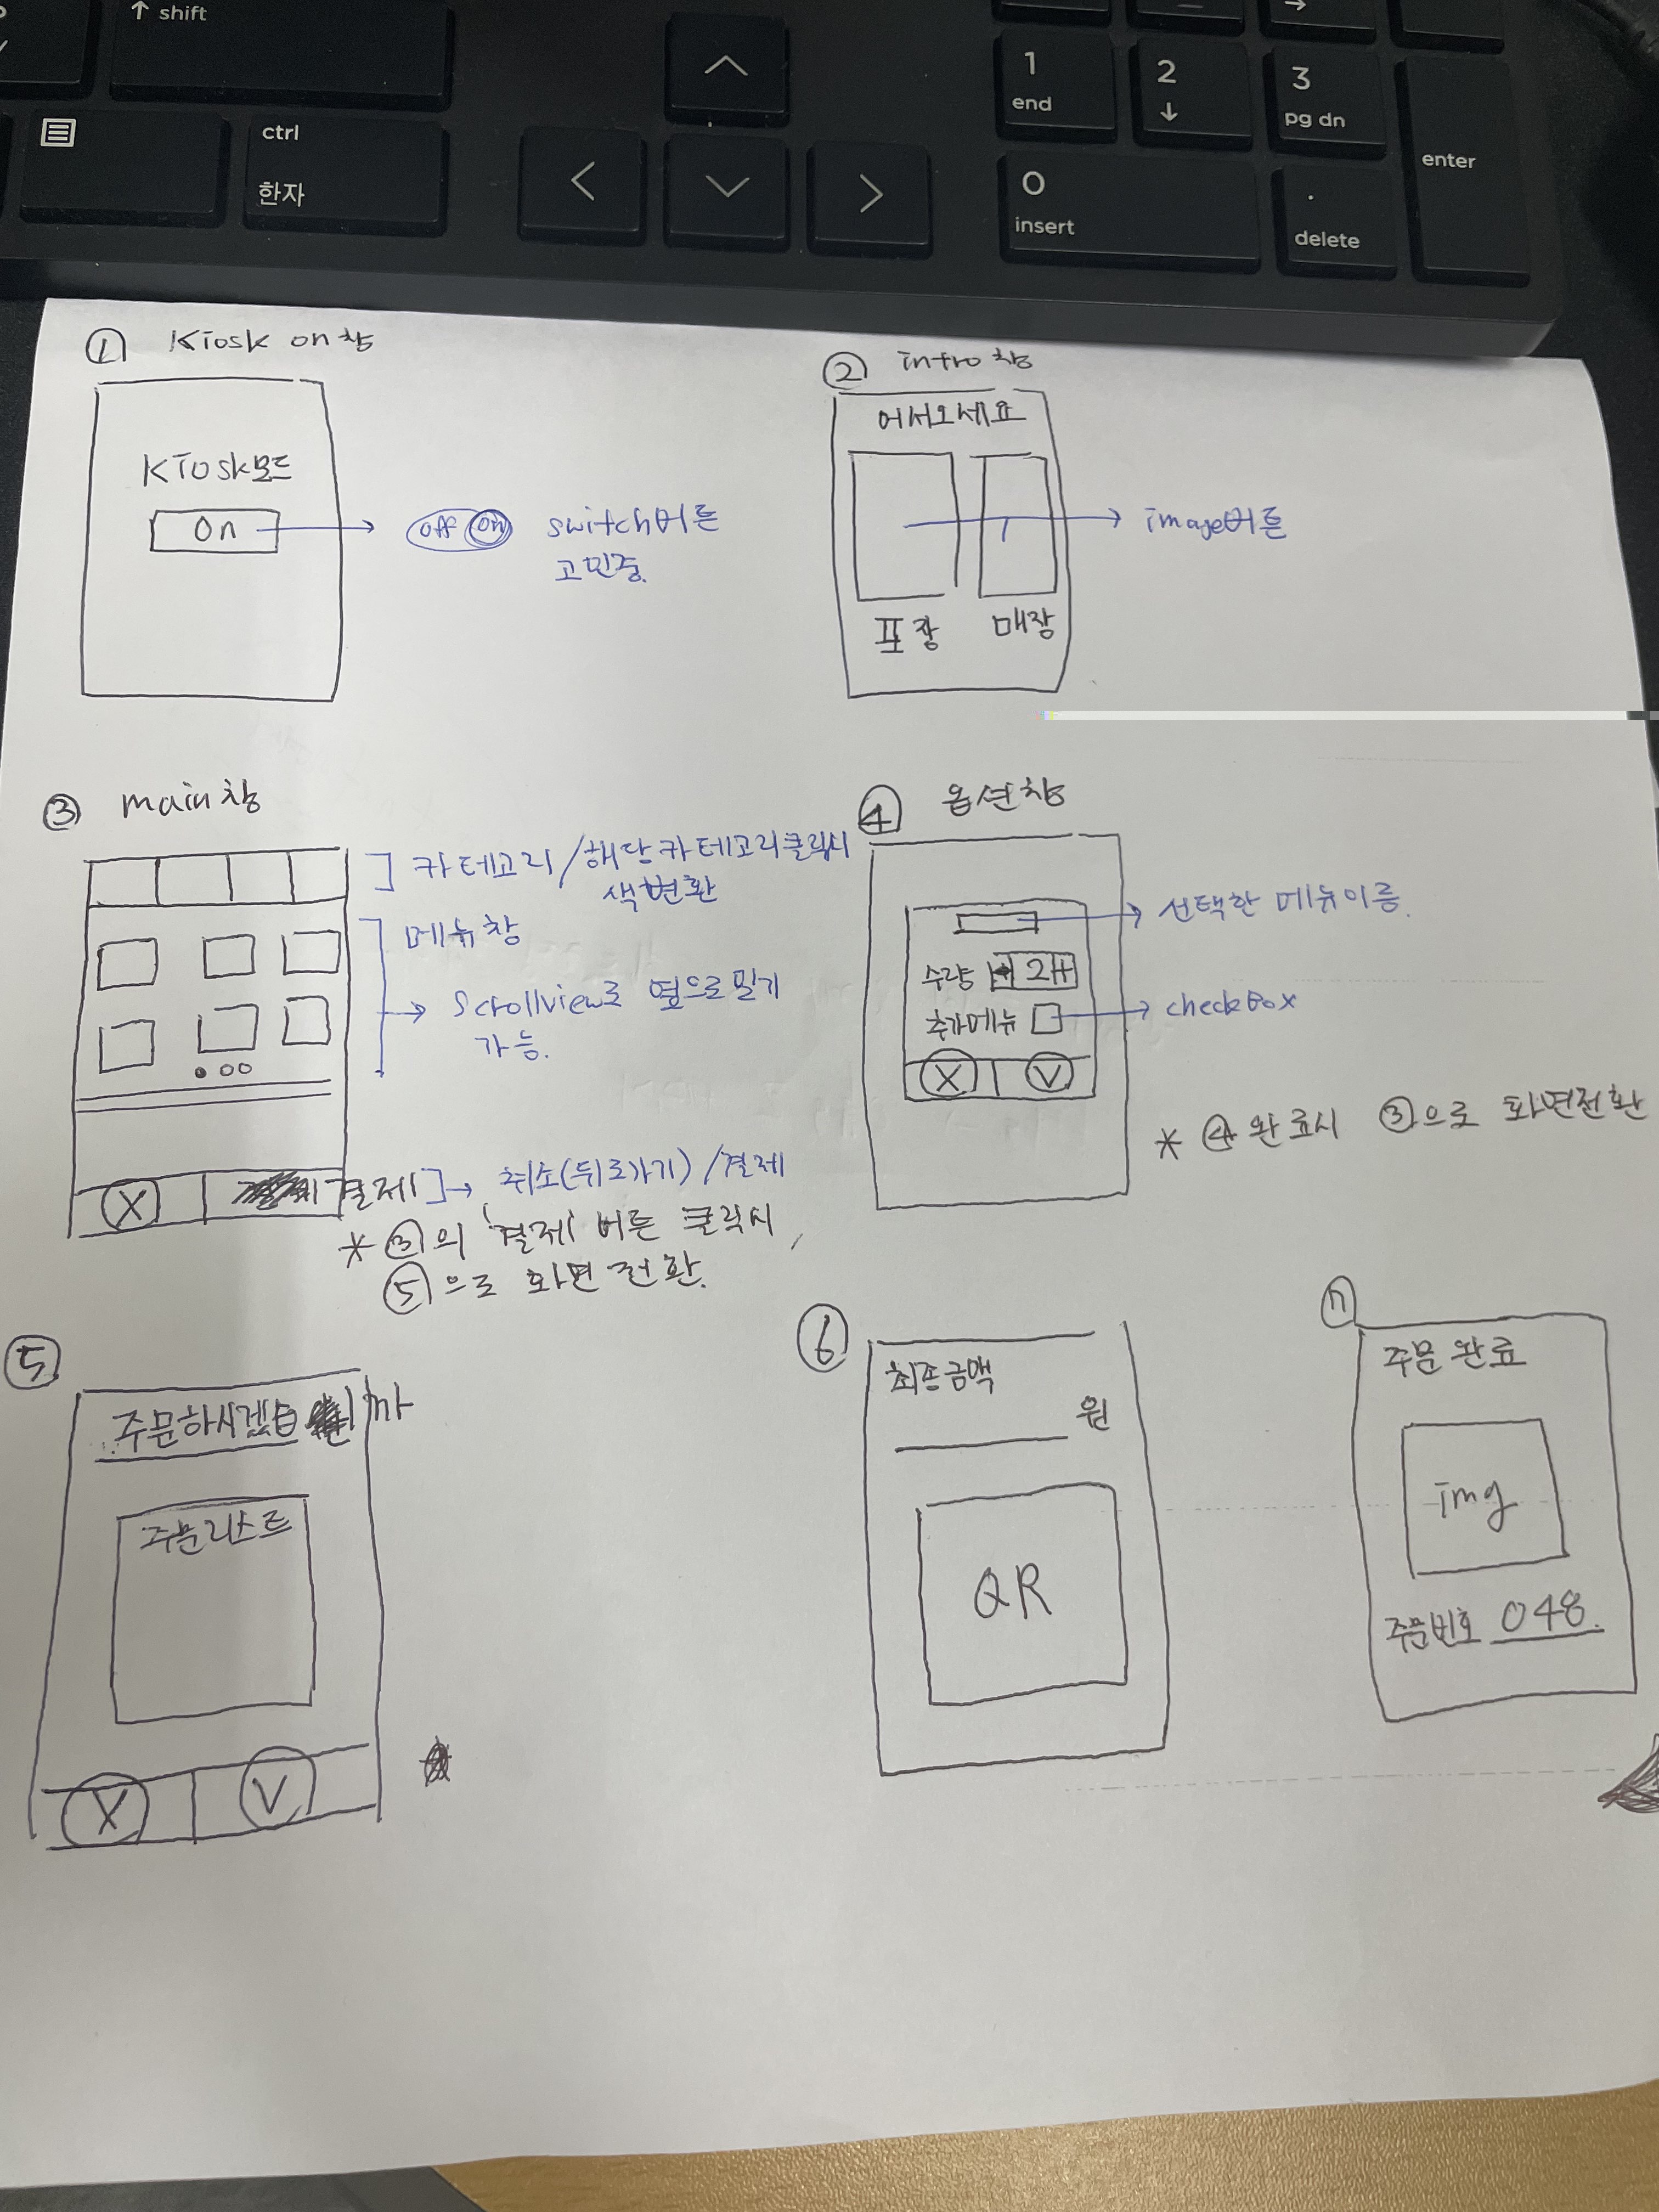 ↑ shift
ctrl
한자
1
end
2
↓
3
pg dn
enter
0
insert
.
delete
① Kiosk on창
Kiosk모드
on
off on
switch버튼
고민중.
② intro창
어서오세요
image버튼
포장
매장
③ main창
카테고리/해당카테고리클릭시
색변환
메뉴창
Scrollview로 옆으로밀기
가능.
X
결제
취소(뒤로가기)/결제
* ③의 '결제' 버튼 클릭시,
⑤으로 화면전환.
④ 옵션창
선택한 메뉴이름.
수량 - 2 +
추가메뉴
checkBox
X V
* ④완료시 ③으로 화면전환
⑤
주문하시겠습 까
주문리스트
X V
⑥
최종금액
원
QR
주문완료
img
주문번호 048.